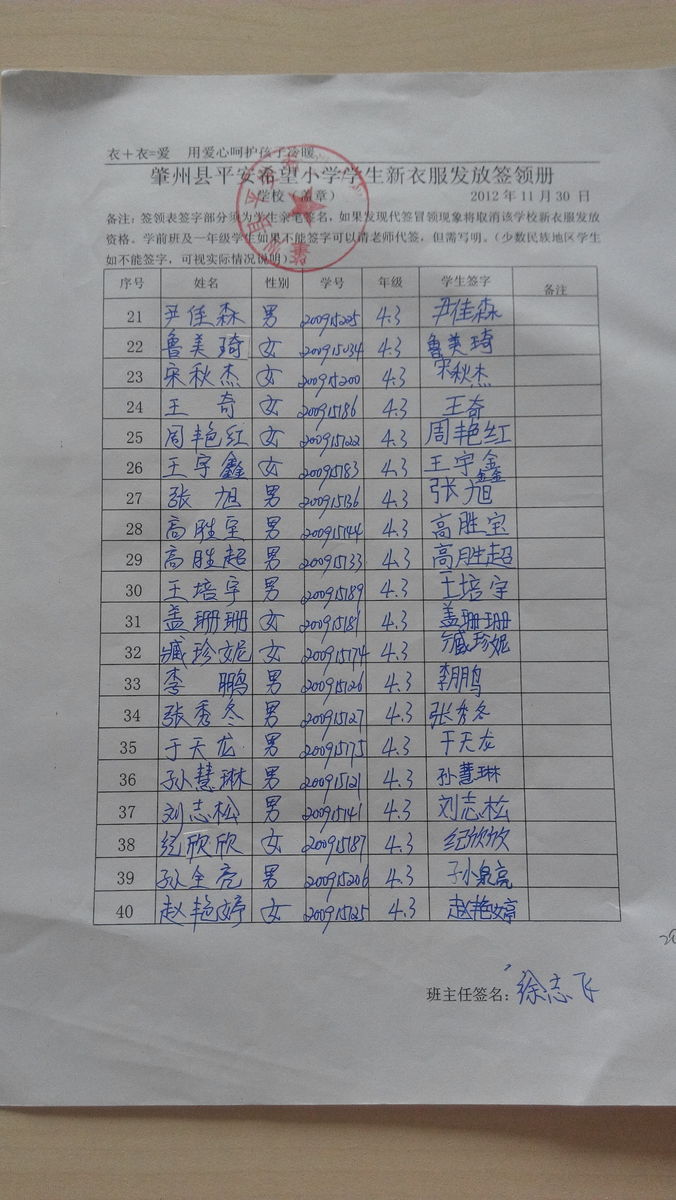 衣＋衣=爱 用爱心呵护孩子冷暖
肇州县平安希望小学学生新衣服发放签领册
学校（盖章） 2012 年 11 月 30 日
备注：签领表签字部分须为学生亲笔签名，如果发现代签冒领现象将取消该学校新衣服发放
资格。学前班及一年级学生如果不能签字可以请老师代签，但需写明。（少数民族地区学生
如不能签字，可视实际情况说明）
序号 姓名 性别 学号 年级 学生签字 备注
21 尹佳森 男 200915225 4.3 尹佳森
22 鲁美琦 女 200915034 4.3 鲁美琦
23 宋秋杰 女 200915200 4.3 宋秋杰
24 王奇 女 200915186 4.3 王奇
25 周艳红 女 200915122 4.3 周艳红
26 王宇鑫 女 200915183 4.3 王宇鑫
27 张旭 男 200915136 4.3 张旭
28 高胜宝 男 200915144 4.3 高胜宝
29 高胜超 男 200915133 4.3 高胜超
30 王培宇 男 200915189 4.3 王培宇
31 盖珊珊 女 200915181 4.3 盖珊珊
32 臧珍妮 女 200915174 4.3 臧珍妮
33 李鹏 男 200915126 4.3 李鹏
34 张秀冬 男 200915127 4.3 张秀冬
35 于天龙 男 200915175 4.3 于天龙
36 孙慧琳 男 200915121 4.3 孙慧琳
37 刘志松 男 200915141 4.3 刘志松
38 纪欣欣 女 200915187 4.3 纪欣欣
39 孙全亮 男 200915206 4.3 孙泉亮
40 赵艳婷 女 200915125 4.3 赵艳婷
班主任签名：徐志飞